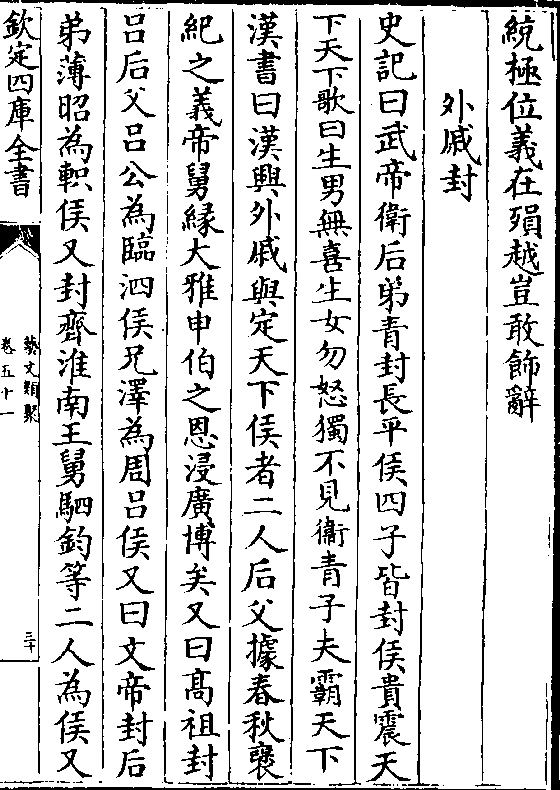 綂極位義在殞越豈敢飾辭
外戚封
史記曰武帝衛后弟青封長平侯四子皆封侯貴震天
下天下歌曰生男無喜生女勿怒獨不見衛青子夫霸天下
漢書曰漢興外戚與定天下侯者二人后父據春秋褒
紀之義帝舅緣大雅申伯之恩浸廣博矣又曰髙祖封
吕后父吕公為臨泗侯兄澤為周吕侯又曰文帝封后
弟薄昭為軹侯又封齊淮南王舅駟鈞等二人為侯又
欽定四庫全書
藝文類聚
卷五十一
三十